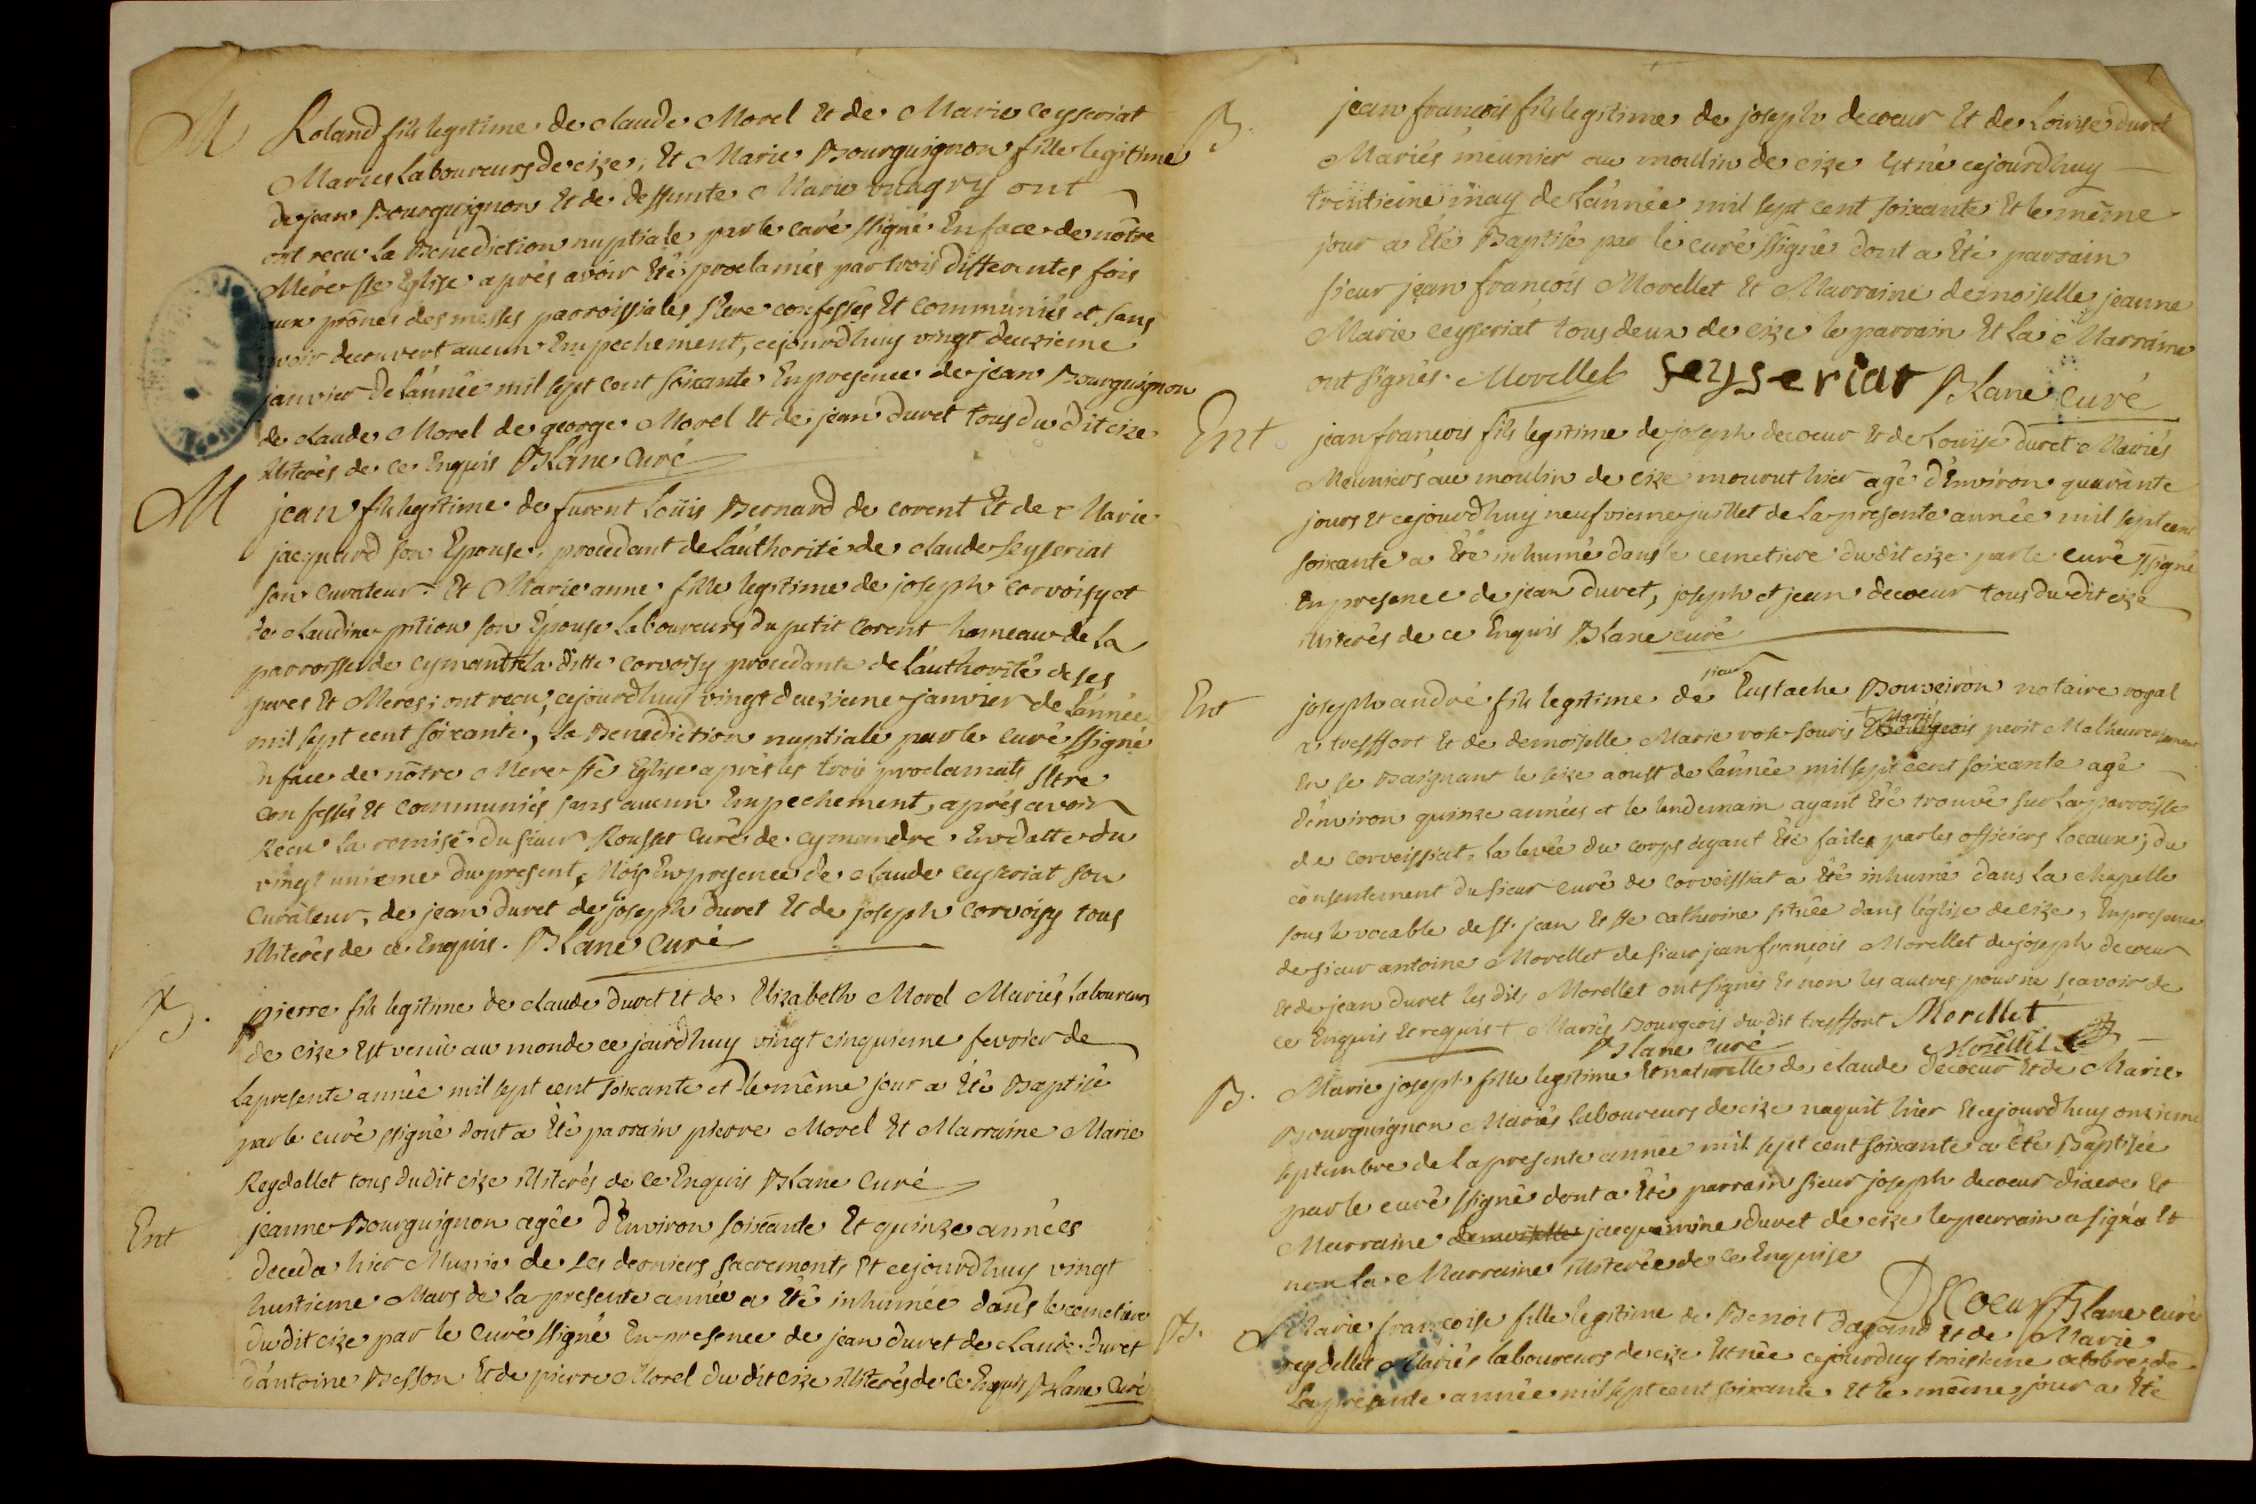 M Roland fils legitime de claude Morel Et de Marie ceyseriat
Mariés Laboureurs de cize, Et Marie Bourguignon fille legitime
de jean Bourguignon Et de deffunte Marie ont
ont recu La Benediction nuptiale par le curé ssigné En face de nôtre
Mére ste Eglise aprés avoir Eté proclamés par trois differentes fois
aux prônes des messes parroissiales s'être confessés Et communiés et sans
avoir decouvert aucun Empechement, cejourdhuy vingt deuxieme
janvier de L'année mil sept cent soixante En presence de jean Bourguignon
de claude Morel de george Morel Et de jean duret tous du dit cize
illiterés de ce Enquis Blanc Curé
M jean fils legitime de furent Loüis Bernard de corent Et de Marie
jacquard son Epouse, procedant de L'authorité de claude seyseriat
son curateur Et Marie anne fille legitime de joseph corvoisy et
de claudine pition son Épouse Laboureurs du petit Corent hameau de La
parroisse de cymandre La ditte corvoisy procedante de L'authorité de ses
peres Et Meres; ont recu, cejourdhuy vingt deuxieme janvier de L'année
mil sept cent soixante, La Benediction nuptiale par le curé ssigné
En face de nôtre Mere ste Eglise aprés les trois proclamats s'être
confessés Et communiés sans aucun Empechement, aprés avoir
Recu La remise du sieur Rousset Curé de cymandre En datte du
vingt unieme du present Mois En presence de claude ceyseriat son
Curateur, de jean duret de joseph duret Et de joseph corvoisy tous
illiterés de ce Enquis. Blanc Curé
B. pierre fils legitime de claude duret Et de Elizabeth Morel Mariés Laboureurs
de cize Est venü au monde ce jourdhuy vingt cinquieme fevrier de
La presente année mil sept cent soixante et le même jour a Eté Baptisé
par le curé ssigné dont a Eté parrain pierre Morel Et Marraine Marie
Reydellet tous du dit cize illiterés de ce Enquis Blanc Curé
Ent jeanne Bourguignon agée d'Environ soixante Et quinze années
deceda hier Munie de ses derniers sacrements Et cejourdhuy vingt
huitieme Mars de La presente année a Eté inhumée dans le cemetiere
du dit cize par le Curé ssigné En presence de jean duret de claude duret
d'antoine Besson Et de pierre Morel du dit cize illiterés de ce Enquis Blanc Curé
B. jean francois fils legitime de joseph decoeur Et de Louise duret
Mariés meunier au moulin de cize Est né cejourdhuy
trentieme may de L'année mil sept cent soixante Et le même
jour a Eté Baptisé par le curé ssigné dont a Eté parrain
sieur jean françois Morellet Et Marraine demoiselle jeanne
Marie ceyseriat tous deux de cize le parrain Et La Marraine
ont signés. Morellet seyseriat Blanc Curé
Ent. jean francois fils legitime de joseph decoeur Et de Louise duret Mariés
Meuniers au moulin de cize mourut hier agé d'Environ quarante
jours Et cejourdhuy neufvieme juillet de La presente année mil sept cent
soixante a Eté inhumé dans le cemetiere du dit cize par le curé ssigné
En presence de jean duret, joseph et jean decoeur tous du dit cize
illiterés de ce Enquis Blanc curé
Ent joseph andré fils legitime de sieur Eustache Bouveiron notaire royal
a tresffort Et de demoiselle Marie rose souris + Mariés Bourgeois perit Malheureusement
En se Baignant le seize aoust de L'année mil sept cent soixante agé
d'environ quinze années et le lendemain ayant Eté trouvé sur La parroisse
de corveissiat, La levée du corps ayant Eté faite par les officiers Locaux, du
consentement du sieur curé de corveissiat a Eté inhumé dans La chapelle
sous le vocable de st. jean Et ste catherine située dans l'église de cize, En presence
de sieur antoine Morellet de sieur jean françois Morellet de joseph decoeur
Et de jean duret les dits Morellet ont signés Et non les autres pour ne sçavoir de
ce Enquis Et requis + Mariés Bourgeois du dit tresffort Morellet
Blanc curé Morellet
B. Marie joseph fille legitime Et naturelle de claude decoeur Et de Marie
Bourguignon Mariés Laboureurs de cize naquit hier Et cejourdhuy onzieme
septembre de La presente année mil sept cent soixante a Eté Baptisée
par le curé ssigné dont a Eté parrain sieur joseph decoeur diacre Et
Marraine demoiselle jacquemine duret de cize le parrain a signé Et
non la Marraine illiterée de ce Enquise
DECoeur Blanc curé
B. Marie francoise fille legitime de Benoit Et de Marie
reydellet Mariés laboureurs de cize Est née cejourduy troisieme octobre de
La presente année mil sept cent soixante Et le même jour a Eté